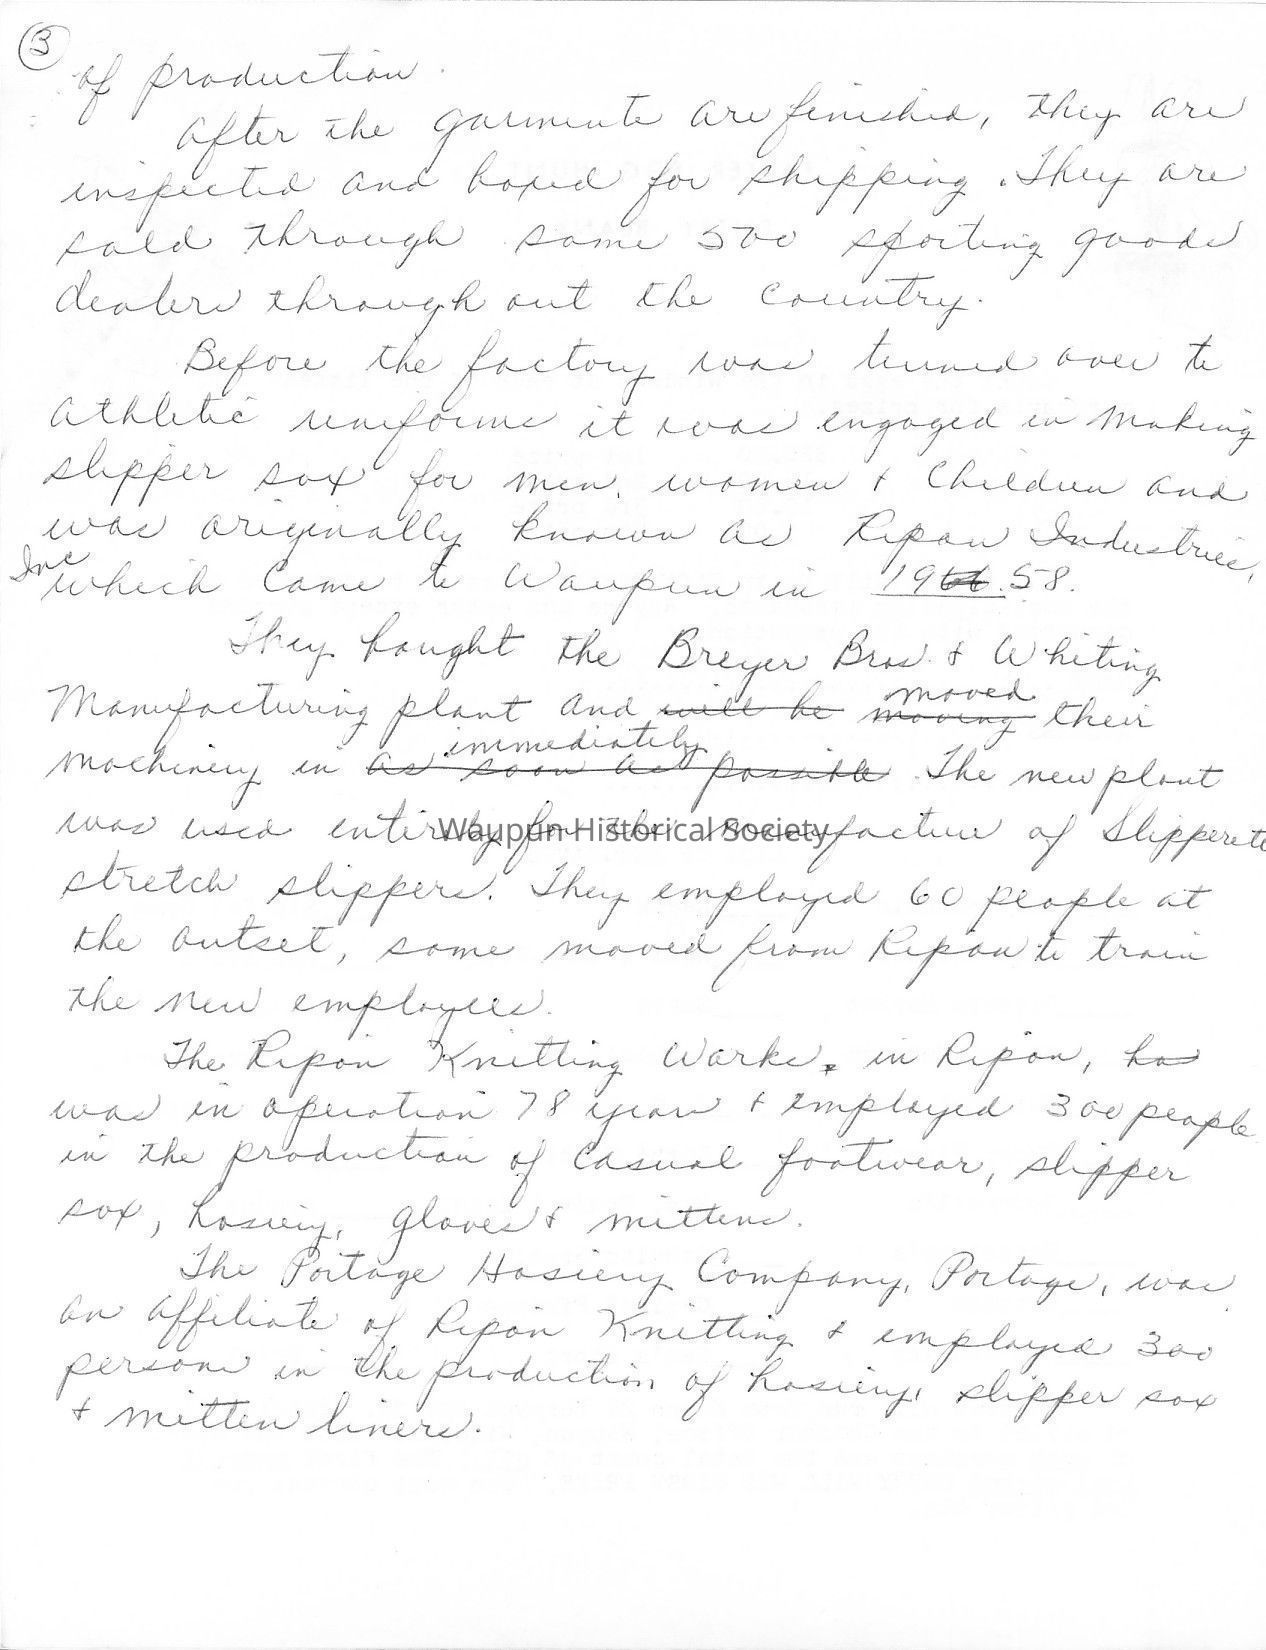 3
of production.
After the garments are finished, they are
inspected and boxed for shipping. They are
sold through some 500 sporting goods
dealers through out the country.
Before the factory was turned over to
athletic uniforms it was engaged in making
slipper sox for men, women & children and
was originally known as Ripon Industries,
Inc which came to Waupun in 19 58.
They bought the Breyer Bros. & Whiting
moved
Manufacturing plant and will be moving their
immediately
machinery in as soon as possible. The new plant
was used entirely for the manufacture of Slipperete
Waupun Historical Society
stretch slippers. They employed 60 people at
the outset, some moved from Ripon to train
the new employees.
The Ripon Knitting Works, in Ripon, has
was in operation 78 years & employed 300 people
in the production of casual footwear, slipper
sox, hosiery, gloves & mittens.
The Portage Hosiery Company, Portage, was
an affiliate of Ripon Knitting & employed 300
persons in the production of hosiery, slipper sox
& mitten liners.